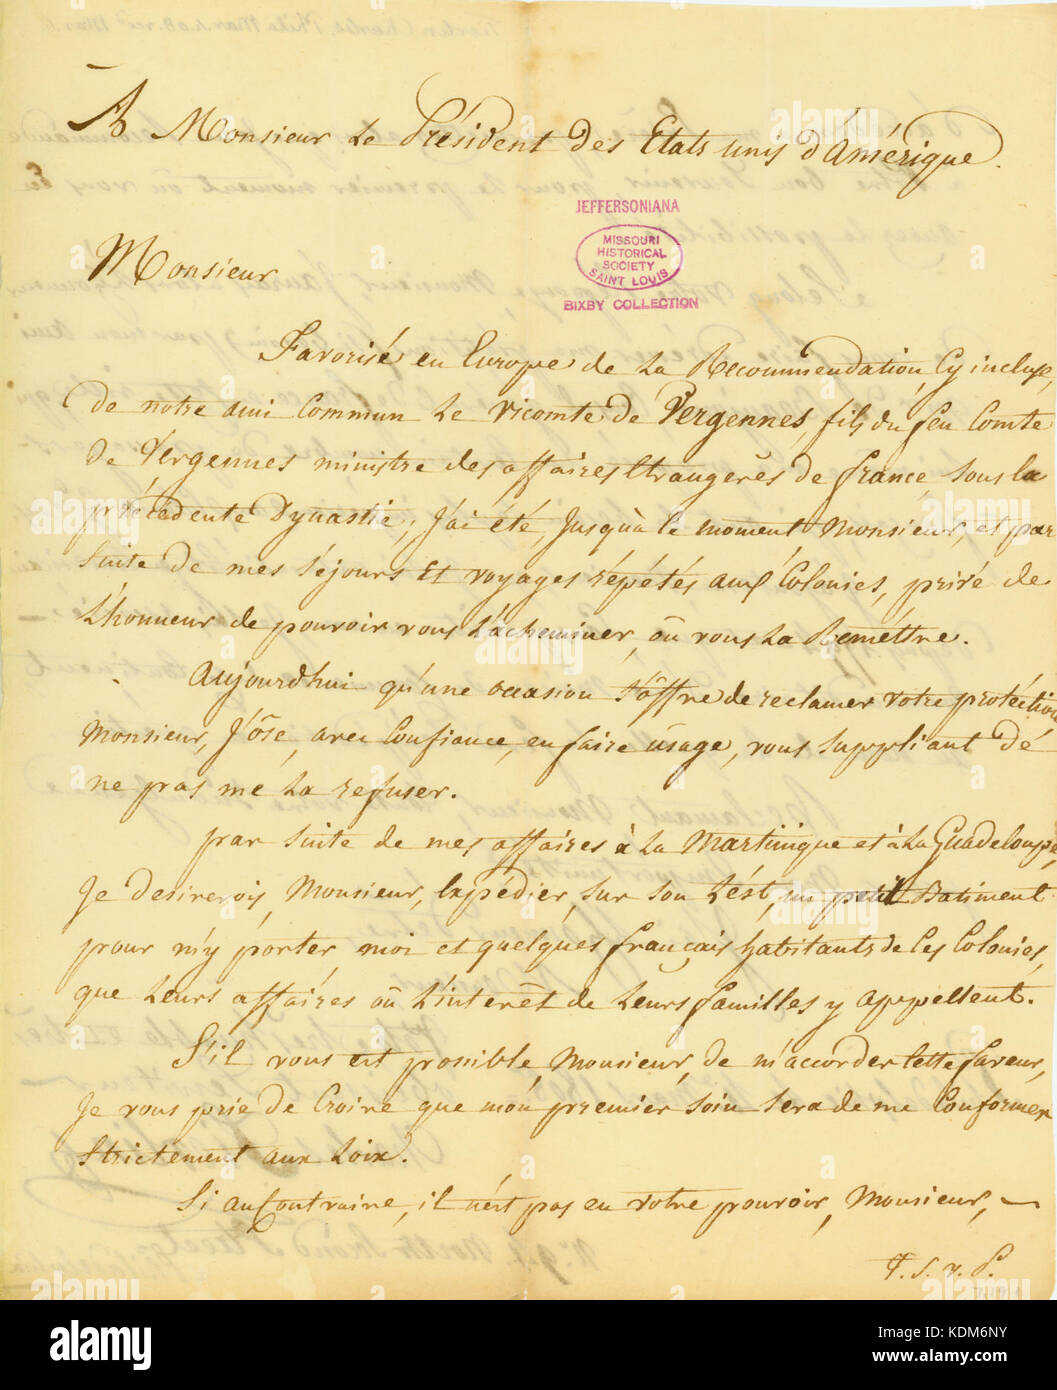 A Monsieur Le Président des Etats unis d'Amérique.
JEFFERSONIANA
MISSOURI
HISTORICAL
SOCIETY
SAINT LOUIS
BIXBY COLLECTION
Monsieur
Favorisé en Europe de La Recommendation Cy incluse,
de notre ami Commun Le Vicomte de Vergennes, fils du feu Comte
de Vergennes ministre des affaires Etrangerês de france, sous la
précédente Dynastie, J'ai été, Jusqu'à le moment Monsieur, et par
suite de mes séjours et voyages répétés aux Colonies, privé de
L'honneur de pouvoir vous L'acheminer, où vous La Remettre.
Aujourdhui qu'une occasion s'offre de reclamer votre protéction
Monsieur, J'ôse, avec Confiance, en faire usage, vous suppliant de
ne pas me La refuser.
par suite de mes affaires à La Martinique et à La Guadeloupe,
Je desirerois, Monsieur, Expédier, sur son Lést, un petit Batiment
pour m'y porter moi et quelques français habitants de Ces Colonies,
que Leurs affaires où L'interêt de Leurs familles y appellent.
S'il vous est possible, Monsieur, de m'accorder Cette faveur,
Je vous prie de Croire que mon premier soin sera de me Conformer
strictement aux Loix.
Si au Contraire, il n'est pas en votre pouvoir, Monsieur,
T. S. v. P.
alamy
Image ID: KDM6NY
www.alamy.com